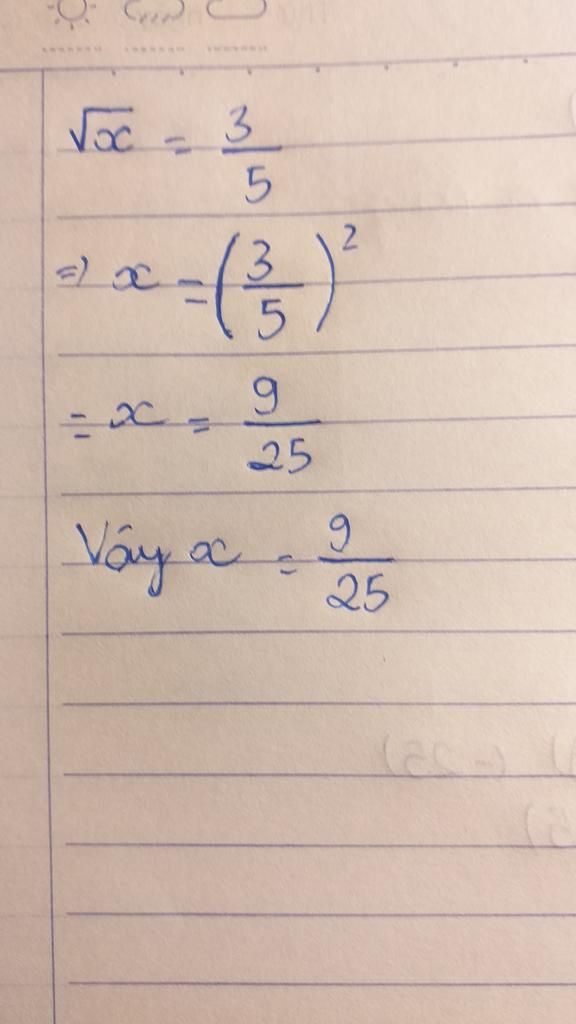 √x = 3/5
=> x = (3/5)²
= x = 9/25
Vậy x = 9/25